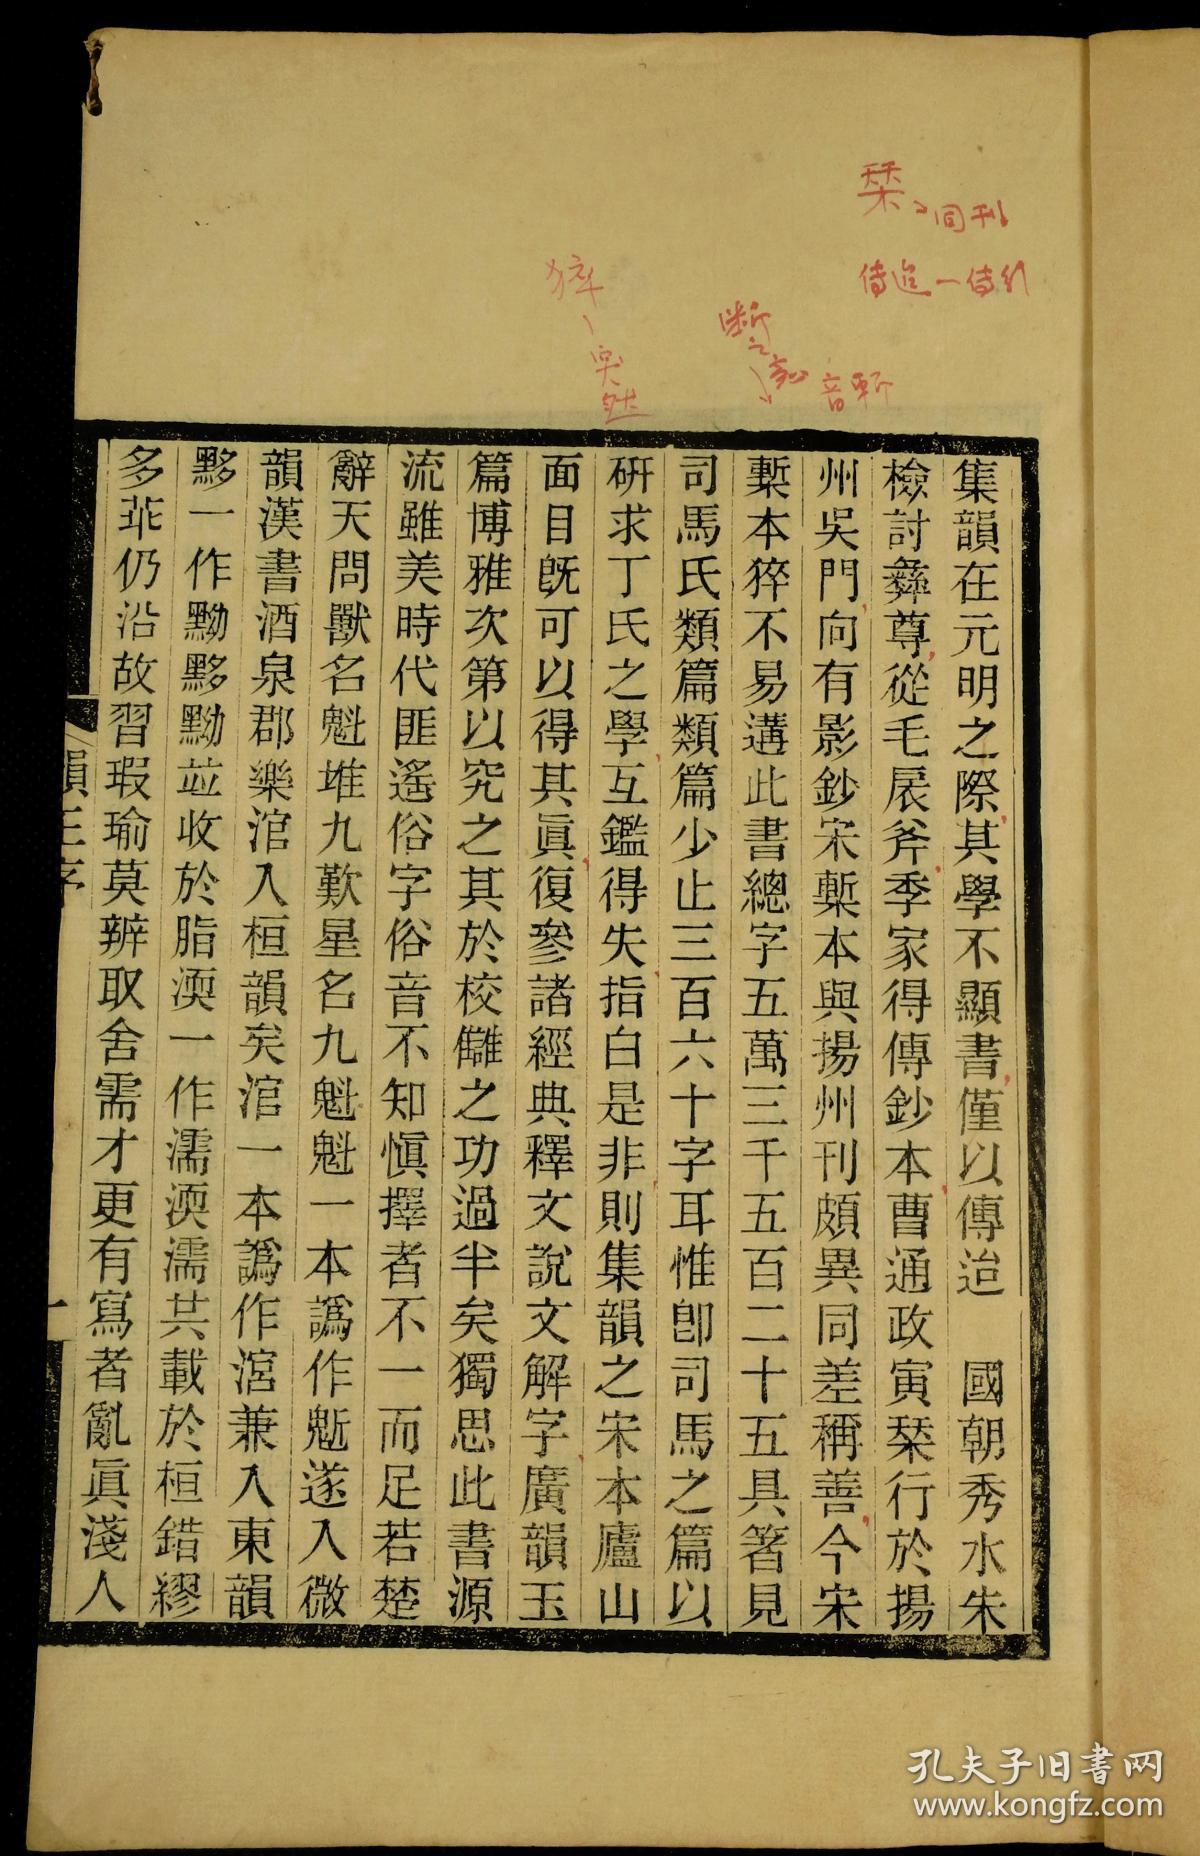 集韻在元明之際其學不顯書僅以傳迨　國朝秀水朱
檢討彝尊從毛扆斧季家得傳鈔本曹通政寅棻行於揚
州吳門向有影鈔宋槧本與揚州刊頗異同差稱善今宋
槧本猝不易遘此書總字五萬三千五百二十五具箸見
司馬氏類篇類篇少止三百六十字耳惟卽司馬之篇以
硏求丁氏之學互鑑得失指白是非則集韻之宋本廬山
面目旣可以得其眞復參諸經典釋文說文解字廣韻玉
篇博雅次第以究之其於校讎之功過半矣獨思此書源
流雖美時代匪遙俗字俗音不知愼擇者不一而足若楚
辭天問獸名魁堆九歎星名九魁魁一本譌作魁遂入微
韻漢書酒泉郡樂涫入桓韻矣涫一本譌作涫兼入東韻
黟一作黝黟黝並收於脂渜一作濡渜濡共載於桓錯繆
多乖仍沿故習瑕瑜莫辨取舍需才更有寫者亂眞淺人
一
同刊
待迨一待引
猝
突然
音
孔夫子旧书网
www.kongfz.com